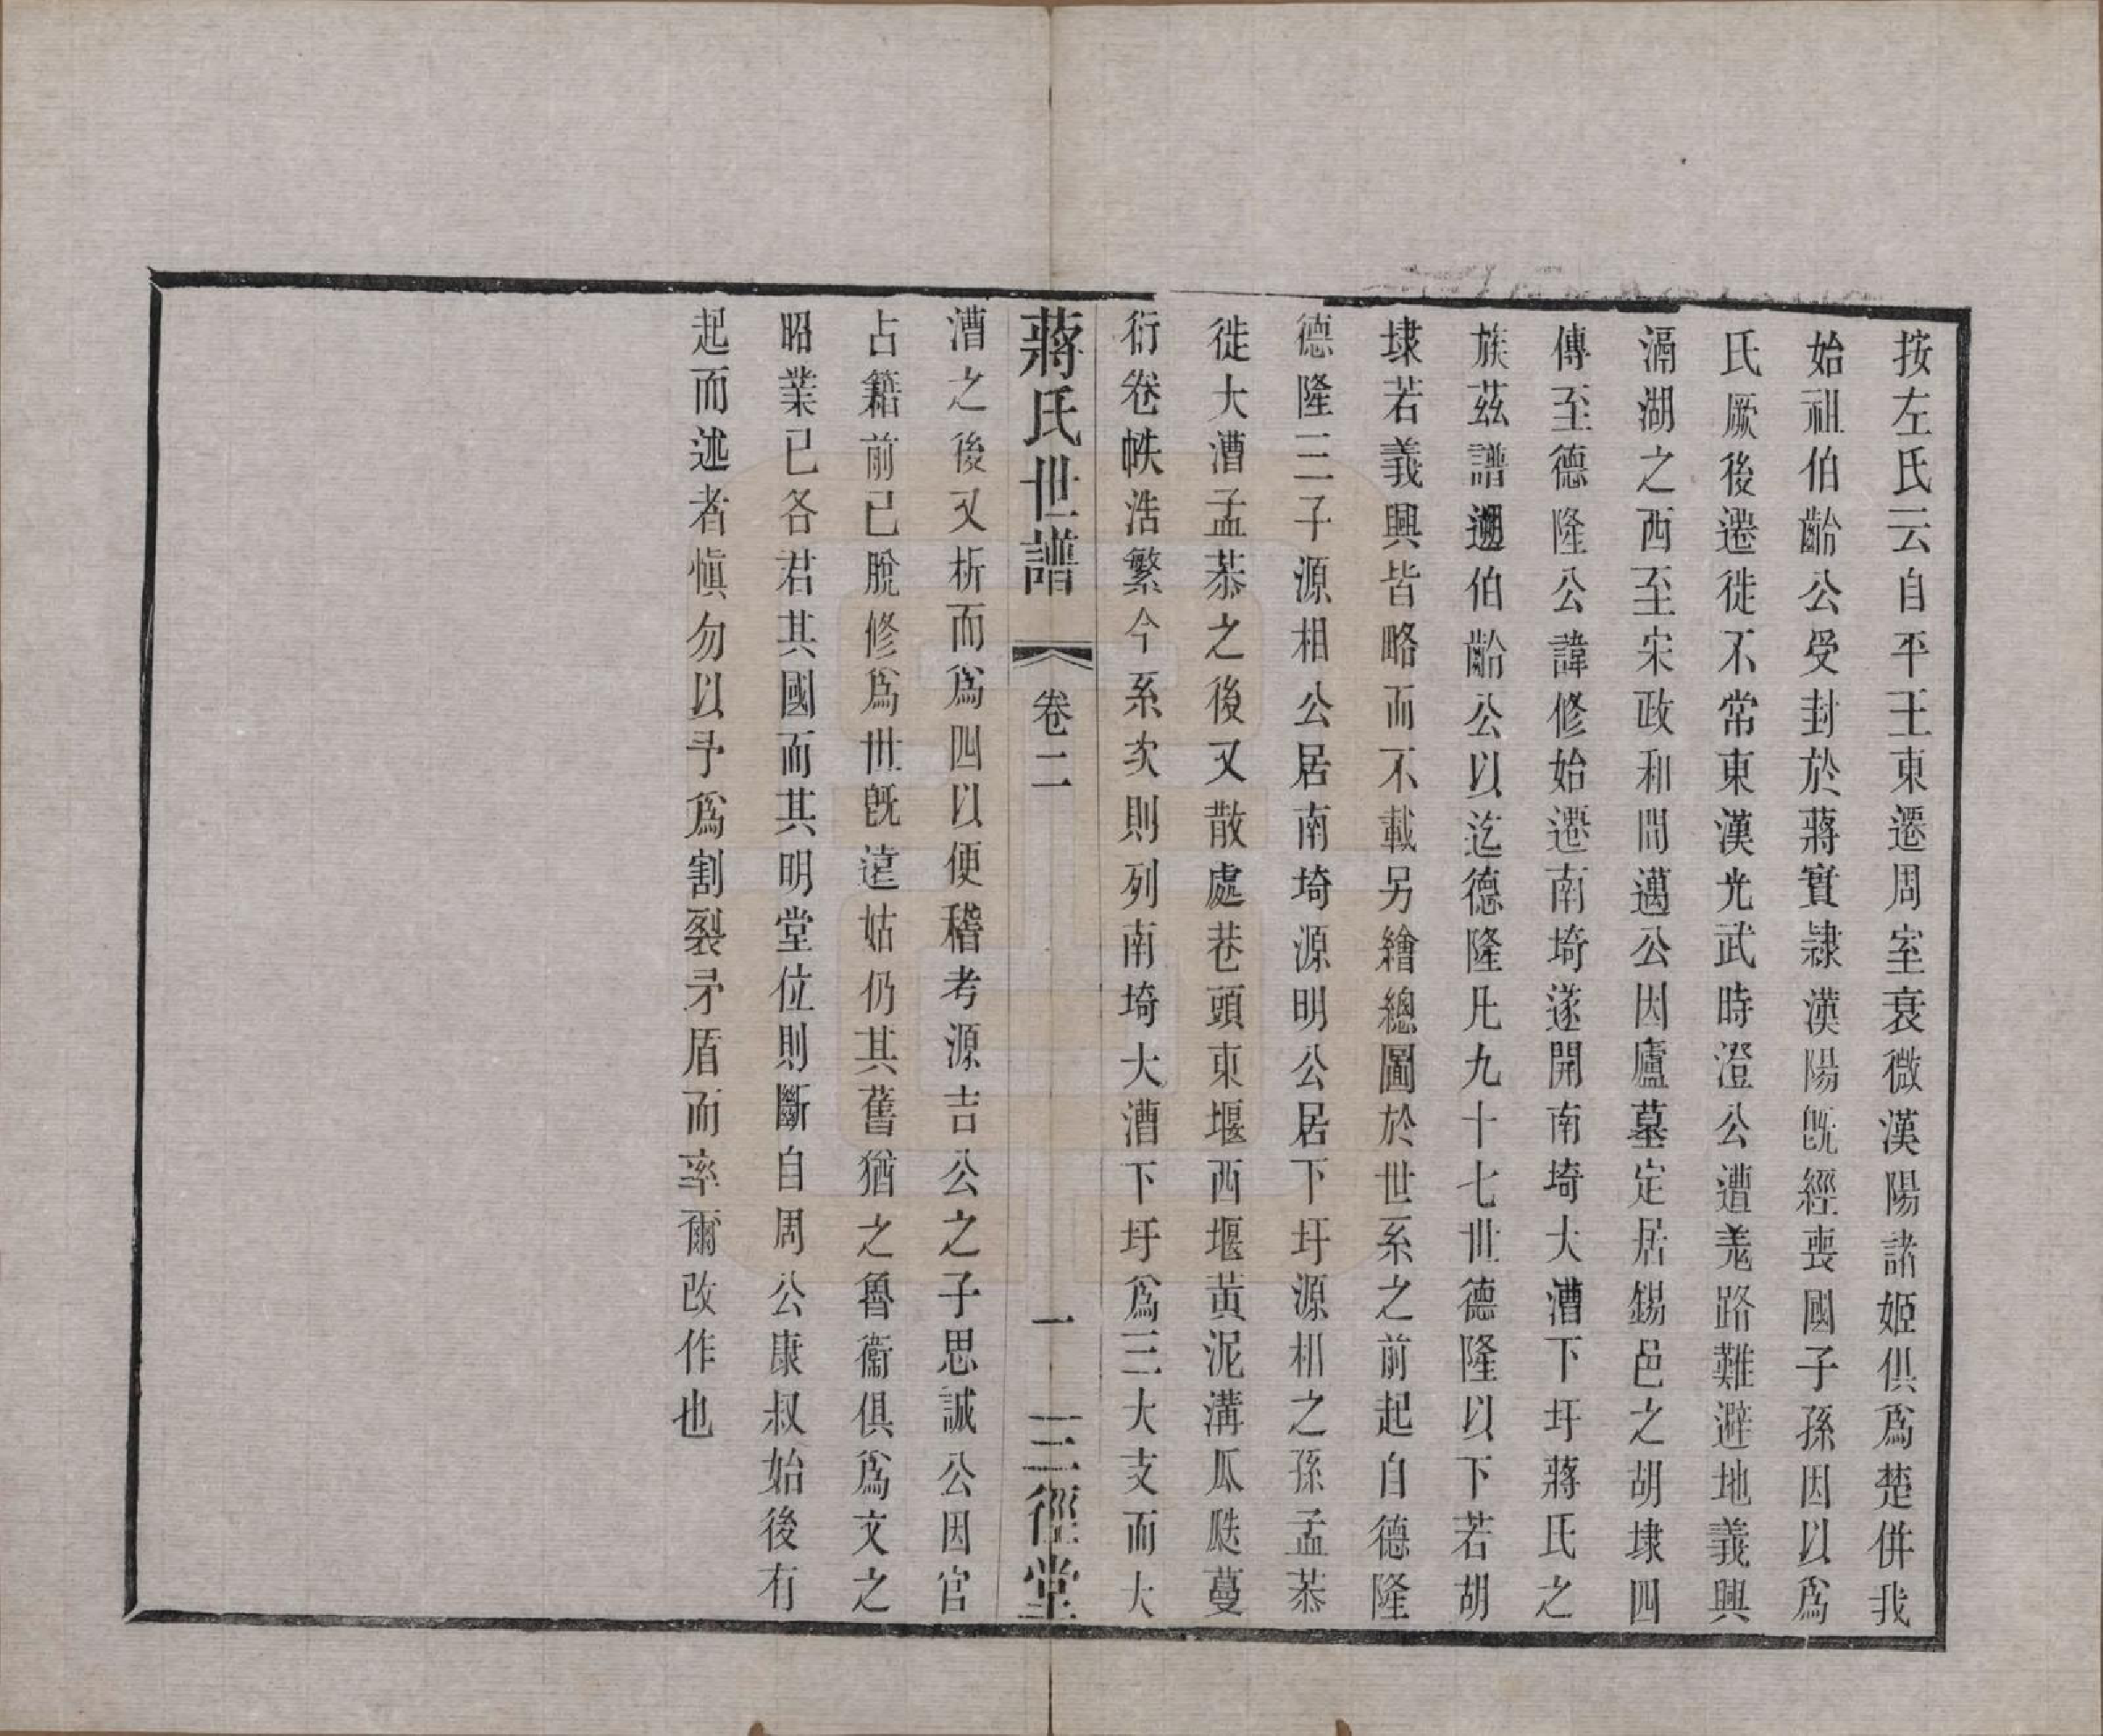 按左氏云自平王東遷周室衰微漢陽諸姬俱爲楚併我
始祖伯齡公受封於蔣實隷漢陽旣經喪國子孫因以爲
氏厥後遷徙不常東漢光武時澄公遭羗路難避地義興
滆湖之西至宋政和間邁公因廬墓定居錫邑之胡埭四
傳至德隆公諱修始遷南埼遂開南埼大漕下圩蔣氏之
族茲譜遡伯齡公以迄德隆凡九十七世德隆以下若胡
埭若義興皆略而不載另繪總圖於世系之前起自德隆
德隆三子源相公居南埼源明公居下圩源相之孫孟恭
徙大漕孟恭之後又散處巷頭東堰西堰黃泥溝瓜瓞蔓
衍卷帙浩繁今系次則列南埼大漕下圩爲三大支而大
蔣氏世譜 卷二 一 三徑堂
漕之後又析而爲四以便稽考源吉公之子思誠公因官
占籍前已脫修爲世旣遠姑仍其舊猶之魯衞俱爲文之
昭業已各君其國而其明堂位則斷自周公康叔始後有
起而述者愼勿以予爲割裂矛盾而率爾改作也